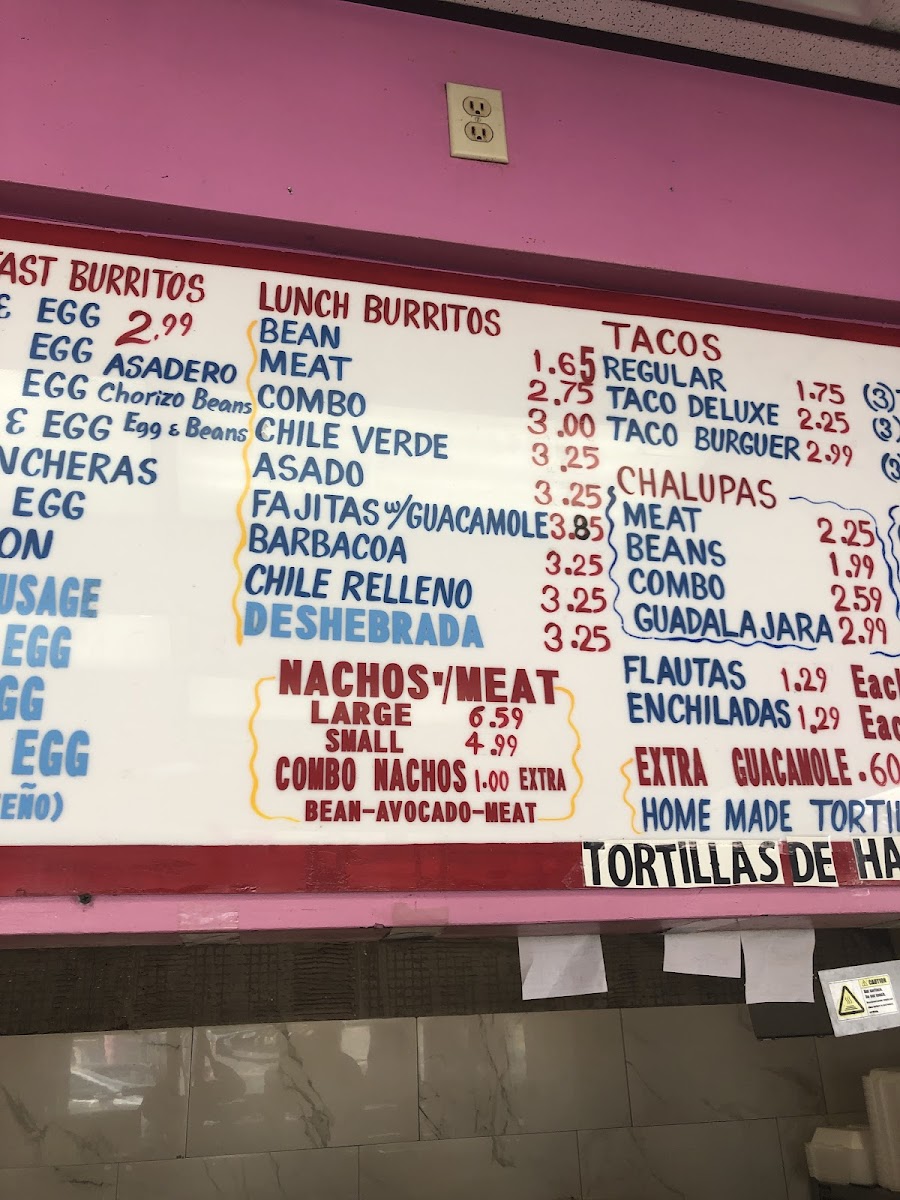 BURRITOS
& EGG 2.99
EGG ASADERO
EGG Chorizo Beans
& EGG Egg & Beans
EGG
EGG
EGG
LUNCH BURRITOS
BEAN 1.65
MEAT 2.75
COMBO 3.00
CHILE VERDE 3.25
ASADO 3.25
FAJITAS w/GUACAMOLE 3.85
BARBACOA 3.25
CHILE RELLENO 3.25
DESHEBRADA 3.25
NACHOS w/MEAT
LARGE 6.59
SMALL 4.99
COMBO NACHOS 1.00 EXTRA
BEAN-AVOCADO-MEAT
TACOS
REGULAR 1.75 (3)
TACO DELUXE 2.25 (3)
TACO BURGUER 2.99 (3)
CHALUPAS
MEAT 2.25
BEANS 1.99
COMBO 2.59
GUADALAJARA 2.99
FLAUTAS 1.29
ENCHILADAS 1.29
EXTRA GUACAMOLE .60
HOME MADE
TORTILLAS DE
CAUTION